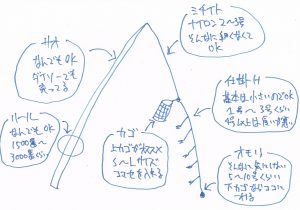 サオ
なんでもOK
ダイソーでも
売ってる
リール
なんでもOK
1500番〜
3000番くらい
ミチイト
ナイロン2〜3号
そんなに細くなくて
OK
仕掛け
基本は小さいのでOK
1号〜3号くらい
4号以上は食いが悪い
カゴ
上カゴがオススメ
S〜Lサイズ
コマセを入れる
オモリ
そんなに
5〜10号くらい
下カゴならココに
つける